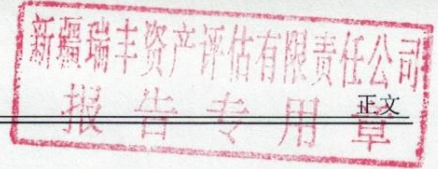 新疆瑞丰资产评估有限责任公司
报告专用章
正文